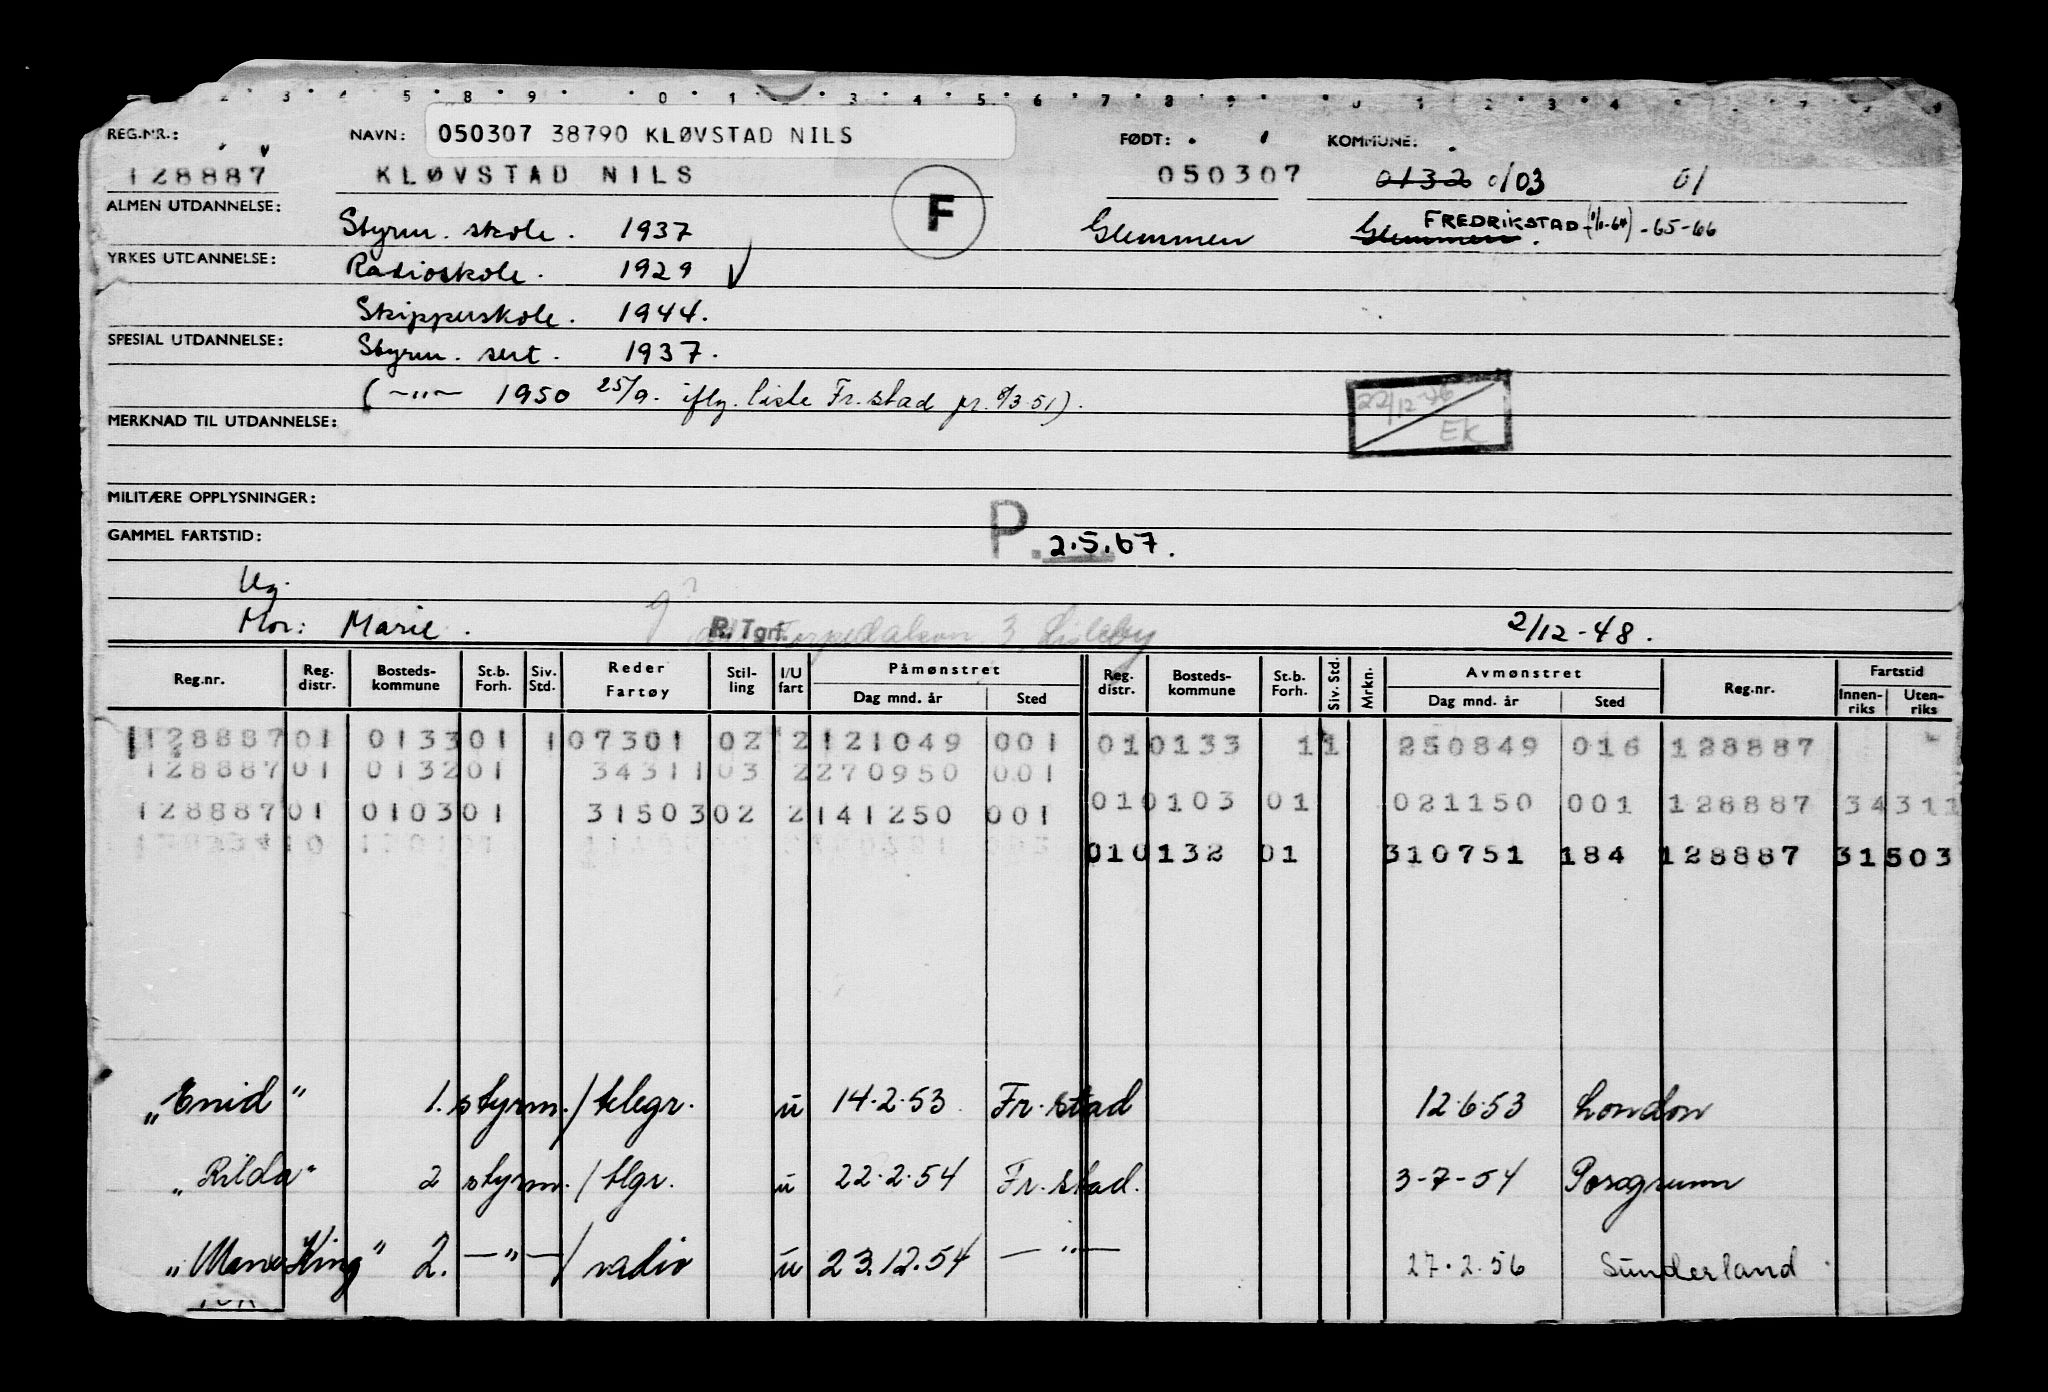 REG.NR.: NAVN: 050307 38790 KLØVSTAD NILS FØDT: KOMMUNE:
128887 KLØVSTAD NILS 050307 0132 0103 01
F
ALMEN UTDANNELSE: Styrm. skole. 1937 Glemmen Glemmen. FREDRIKSTAD -65-66
YRKES UTDANNELSE: Radioskole. 1929 ✓
Skipperskole. 1944.
SPESIAL UTDANNELSE: Styrm. sert. 1937.
( —"— 1950 25/9. iflg. liste Fr.stad pr. 8/3 51).
22/12-76
EK
MERKNAD TIL UTDANNELSE:
MILITÆRE OPPLYSNINGER:
GAMMEL FARTSTID: P. 2.5.67.
Ug.
Mor: Marie. R. Tgrf. 3 Lisleby 2/12-48.
Reg.nr. Reg. distr. Bosteds-kommune St.b. Forh. Siv. Std. Reder Fartøy Stil-ling I/U fart Påmønstret Dag mnd. år Sted Reg. distr. Bosteds-kommune St.b. Forh. Siv. Std. Mrkn. Avmønstret Dag mnd. år Sted Reg.nr. Fartstid Innen-riks Uten-riks
128887 01 0133 01 1 07301 02 2 121049 001 01 0133 1 1 250849 016 128887
128887 01 0132 01 34311 03 2 270950 001
01 0103 01 021150 001 128887 34311
128887 01 0103 01 31503 02 2 141250 001
01 0132 01 310751 184 128887 31503
„Enid" 1. styrm./telegr. u 14.2.53 Fr.stad 12.6.53 London
„Rilda" 2 styrm./tlgr. u 22.2.54 Fr.stad. 3-7-54 Porsgrunn
King" 2. —"—/radio u 23.12.54 —"— 27.2.56 Sunderland